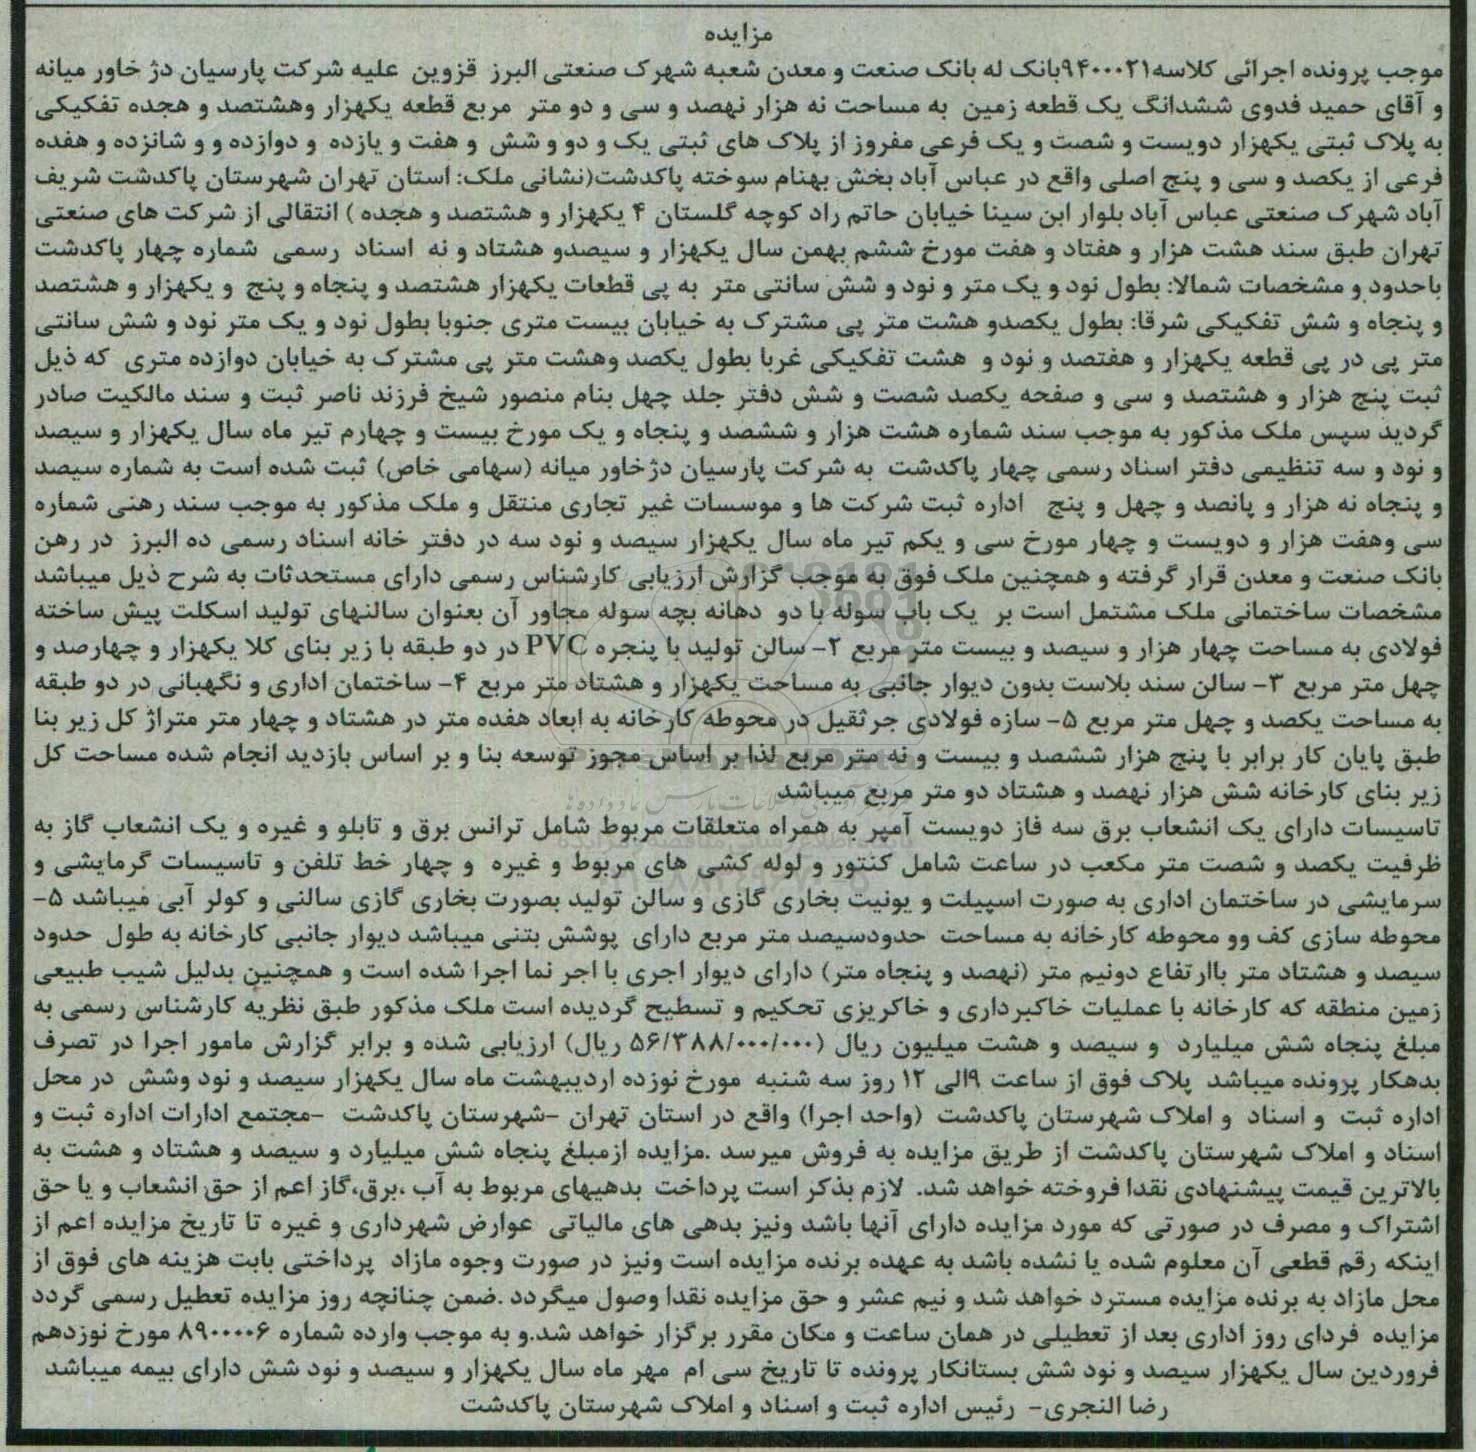 مزایده
موجب پرونده اجرائی کلاسه۹۴۰۰۰۲۱بانک له بانک صنعت و معدن شعبه شهرک صنعتی البرز قزوین علیه شرکت پارسیان دژ خاور میانه
و آقای حمید فدوی ششدانگ یک قطعه زمین به مساحت نه هزار نهصد و سی و دو متر مربع قطعه یکهزار وهشتصد و هجده تفکیکی
به پلاک ثبتی یکهزار دویست و شصت و یک فرعی مفروز از پلاک های ثبتی یک و دو و شش و هفت و یازده و دوازده و و شانزده و هفده
فرعی از یکصد و سی و پنج اصلی واقع در عباس آباد بخش بهنام سوخته پاکدشت(نشانی ملک: استان تهران شهرستان پاکدشت شریف
آباد شهرک صنعتی عباس آباد بلوار ابن سینا خیابان حاتم راد کوچه گلستان ۴ یکهزار و هشتصد و هجده ) انتقالی از شرکت های صنعتی
تهران طبق سند هشت هزار و هفتاد و هفت مورخ ششم بهمن سال یکهزار و سیصدو هشتاد و نه اسناد رسمی شماره چهار پاکدشت
باحدود و مشخصات شمالا: بطول نود و یک متر و نود و شش سانتی متر به پی قطعات یکهزار هشتصد و پنجاه و پنج و یکهزار و هشتصد
و پنجاه و شش تفکیکی شرقا: بطول یکصدو هشت متر پی مشترک به خیابان بیست متری جنوبا بطول نود و یک متر نود و شش سانتی
متر پی در پی قطعه یکهزار و هفتصد و نود و هشت تفکیکی غربا بطول یکصد وهشت متر پی مشترک به خیابان دوازده متری که ذیل
ثبت پنج هزار و هشتصد و سی و صفحه یکصد شصت و شش دفتر جلد چهل بنام منصور شیخ فرزند ناصر ثبت و سند مالکیت صادر
گردید سپس ملک مذکور به موجب سند شماره هشت هزار و ششصد و پنجاه و یک مورخ بیست و چهارم تیر ماه سال یکهزار و سیصد
و نود و سه تنظیمی دفتر اسناد رسمی چهار پاکدشت به شرکت پارسیان دژخاور میانه (سهامی خاص) ثبت شده است به شماره سیصد
و پنجاه نه هزار و پانصد و چهل و پنج اداره ثبت شرکت ها و موسسات غیر تجاری منتقل و ملک مذکور به موجب سند رهنی شماره
سی وهفت هزار و دویست و چهار مورخ سی و یکم تیر ماه سال یکهزار سیصد و نود سه در دفتر خانه اسناد رسمی ده البرز در رهن
بانک صنعت و معدن قرار گرفته و همچنین ملک فوق به موجب گزارش ارزیابی کارشناس رسمی دارای مستحدثات به شرح ذیل میباشد
مشخصات ساختمانی ملک مشتمل است بر یک باب سوله با دو دهانه بچه سوله مجاور آن بعنوان سالنهای تولید اسکلت پیش ساخته
فولادی به مساحت چهار هزار و سیصد و بیست متر مربع ۲- سالن تولید با پنجره PVC در دو طبقه با زیر بنای کلا یکهزار و چهارصد و
چهل متر مربع ۳- سالن سند بلاست بدون دیوار جانبی به مساحت یکهزار و هشتاد متر مربع ۴- ساختمان اداری و نگهبانی در دو طبقه
به مساحت یکصد و چهل متر مربع ۵- سازه فولادی جرثقیل در محوطه کارخانه به ابعاد هفده متر در هشتاد و چهار متر متراژ کل زیر بنا
طبق پایان کار برابر با پنج هزار ششصد و بیست و نه متر مربع لذا بر اساس مجوز توسعه بنا و بر اساس بازدید انجام شده مساحت کل
زیر بنای کارخانه شش هزار نهصد و هشتاد دو متر مربع میباشد
تاسیسات دارای یک انشعاب برق سه فاز دویست آمپر به همراه متعلقات مربوط شامل ترانس برق و تابلو و غیره و یک انشعاب گاز به
ظرفیت یکصد و شصت متر مکعب در ساعت شامل کنتور و لوله کشی های مربوط و غیره و چهار خط تلفن و تاسیسات گرمایشی و
سرمایشی در ساختمان اداری به صورت اسپیلت و یونیت بخاری گازی و سالن تولید بصورت بخاری گازی سالنی و کولر آبی میباشد ۵-
محوطه سازی کف وو محوطه کارخانه به مساحت حدودسیصد متر مربع دارای پوشش بتنی میباشد دیوار جانبی کارخانه به طول حدود
سیصد و هشتاد متر باارتفاع دونیم متر (نهصد و پنجاه متر) دارای دیوار اجری با اجر نما اجرا شده است و همچنین بدلیل شیب طبیعی
زمین منطقه که کارخانه با عملیات خاکبرداری و خاکریزی تحکیم و تسطیح گردیده است ملک مذکور طبق نظریه کارشناس رسمی به
مبلغ پنجاه شش میلیارد و سیصد و هشت میلیون ریال (۵۶/۳۸۸/۰۰۰/۰۰۰ ریال) ارزیابی شده و برابر گزارش مامور اجرا در تصرف
بدهکار پرونده میباشد پلاک فوق از ساعت ۹الی ۱۲ روز سه شنبه مورخ نوزده اردیبهشت ماه سال یکهزار سیصد و نود وشش در محل
اداره ثبت و اسناد و املاک شهرستان پاکدشت (واحد اجرا) واقع در استان تهران -شهرستان پاکدشت -مجتمع ادارات اداره ثبت و
اسناد و املاک شهرستان پاکدشت از طریق مزایده به فروش میرسد .مزایده ازمبلغ پنجاه شش میلیارد و سیصد و هشتاد و هشت به
بالاترین قیمت پیشنهادی نقدا فروخته خواهد شد. لازم بذکر است پرداخت بدهیهای مربوط به آب ،برق،گاز اعم از حق انشعاب و یا حق
اشتراک و مصرف در صورتی که مورد مزایده دارای آنها باشد ونیز بدهی های مالیاتی عوارض شهرداری و غیره تا تاریخ مزایده اعم از
اینکه رقم قطعی آن معلوم شده یا نشده باشد به عهده برنده مزایده است ونیز در صورت وجوه مازاد پرداختی بابت هزینه های فوق از
محل مازاد به برنده مزایده مسترد خواهد شد و نیم عشر و حق مزایده نقدا وصول میگردد .ضمن چنانچه روز مزایده تعطیل رسمی گردد
مزایده فردای روز اداری بعد از تعطیلی در همان ساعت و مکان مقرر برگزار خواهد شد.و به موجب وارده شماره ۸۹۰۰۰۰۶ مورخ نوزدهم
فروردین سال یکهزار سیصد و نود شش بستانکار پرونده تا تاریخ سی ام مهر ماه سال یکهزار و سیصد و نود شش دارای بیمه میباشد
رضا النجری- رئیس اداره ثبت و اسناد و املاک شهرستان پاکدشت